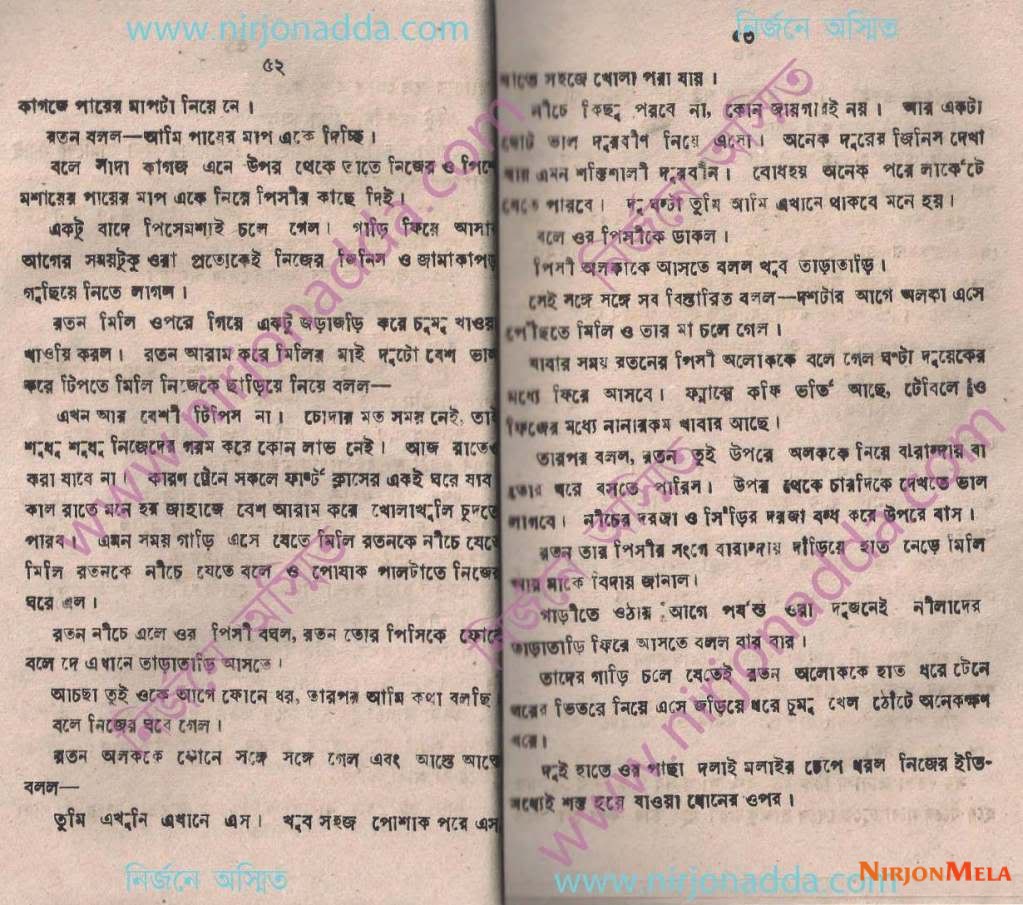 www.nirjonadda.com
নির্জনে অস্মিত
৫২
কাগজে পায়ের মাপটা নিয়ে নে।
রতন বলল—আমি পায়ের মাপ একে দিচ্ছি।
বলে সাদা কাগজ এনে উপর থেকে তাতে নিজের ও পিসে
মশায়ের পায়ের মাপ একে নিয়ে পিসীর কাছে দিই।
একটু বাদে পিসেমশাই চলে গেল। গাড়ি ফিরে আসার
আগের সময়টুকু ওরা প্রত্যেকেই নিজের জিনিস ও জামাকাপড়
গুছিয়ে নিতে লাগল।
রতন মিলি ওপরে গিয়ে একটু জড়াজড়ি করে চুমু খাওয়া
খাওয়ি করল। রতন আরাম করে মিলির মাই দুটো বেশ ভাল
করে টিপতে মিলি নিজেকে ছাড়িয়ে নিয়ে বলল—
এখন আর বেশী টিপিস না। চোদার মত সময় নেই, তাই
শুধু শুধু নিজেদের গরম করে কোন লাভ নেই। আজ রাতেও
করা যাবে না। কারণ ট্রেনে সকলে ফার্স্ট ক্লাসের একই ঘরে যাব
কাল রাতে মনে হয় জাহাজে বেশ আরাম করে খোলাখুলি চুদতে
পারব। এমন সময় গাড়ি এসে যেতে মিলি রতনকে নীচে যেতে
মিলি রতনকে নীচে যেতে বলে ও পোষাক পালটাতে নিজের
ঘরে এল।
রতন নীচে এলে ওর পিসী বলল, রতন তোর পিসিকে ফোনে
বলে দে এখানে তাড়াতাড়ি আসতে।
আচছা তুই ওকে আগে ফোনে ধর, তারপর আমি কথা বলছি
বলে নিজের ঘরে গেল।
রতন অলককে ফোনে সঙ্গে সঙ্গে পেল এবং আস্তে আস্তে
বলল—
তুমি এখুনি এখানে এস। খুব সহজ পোশাক পরে এস
৫৩
যাতে সহজে খোলা পরা যায়।
নীচে কিছু পরবে না, কোন জায়গারই নয়। আর একটা
ছোট ভাল দুরবীণ নিয়ে এসো। অনেক দুরের জিনিস দেখা
যায় এমন শক্তিশালী দুরবীন। বোধহয় অনেক পরে
যেতে পারবে। দু ঘণ্টা তুমি আমি এখানে থাকবে মনে হয়।
বলে ওর পিসীকে ডাকল।
পিসী অলকাকে আসতে বলল খুব তাড়াতাড়ি।
সেই সঙ্গে সঙ্গে সব বিস্তারিত বলল—দশটার আগে অলকা এসে
পৌঁছতে মিলি ও তার মা চলে গেল।
যাবার সময় রতনের পিসী অলোককে বলে গেল ঘণ্টা দুয়েকের
মধ্যে ফিরে আসবে। ফ্লাস্কে কফি ভর্তি আছে, টেবিলে ও
ফ্রিজের মধ্যে নানারকম খাবার আছে।
তারপর বলল, রতন তুই উপরে অলককে নিয়ে বারান্দায় বা
তোর ঘরে বসতে পারিস। উপর থেকে চারদিকে দেখতে ভাল
লাগবে। নীচের দরজা ও সিঁড়ির দরজা বন্ধ করে উপরে বাস।
রতন তার পিসীর সংগে বারান্দায় দাঁড়িয়ে হাত নেড়ে মিলি
আর মাকে বিদায় জানাল।
গাড়ীতে ওঠার আগে পর্যন্ত ওরা দুজনেই নীলাদের
তাড়াতাড়ি ফিরে আসতে বলল বার বার।
তাদের গাড়ি চলে যেতেই রতন অলোককে হাত ধরে টেনে
ঘরের ভিতরে নিয়ে এসে জড়িয়ে ধরে চুমু খেল ঠোঁটে অনেকক্ষণ
ধরে।
দুই হাতে ওর পাছা দলাই মলাইর চেপে ধরল নিজের ইতি-
মধ্যেই শক্ত হয়ে যাওয়া ধোনের ওপর।
নির্জনে অস্মিত
www.nirjonadda.com
NIRJONMELA